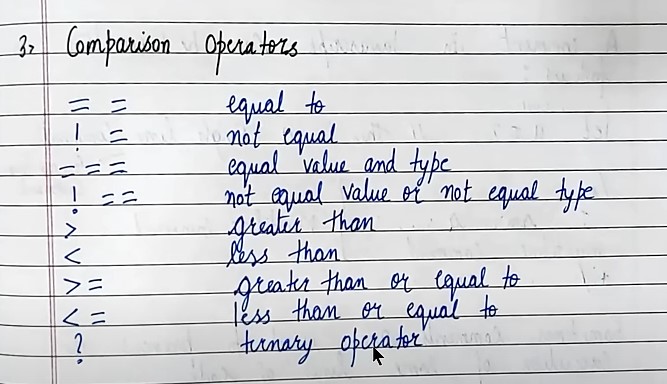 3> Comparison Operators
= = equal to
! = not equal
=== equal value and type
! == not equal value or not equal type
> greater than
< less than
>= greater than or equal to
<= less than or equal to
? ternary operator